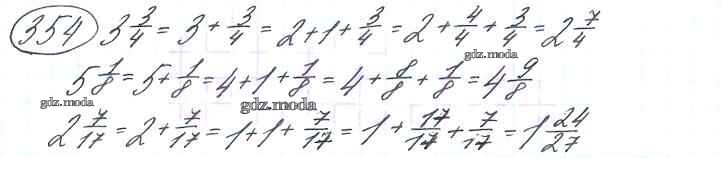 354 3 3/4 = 3 + 3/4 = 2 + 1 + 3/4 = 2 + 4/4 + 3/4 = 2 7/4
gdz.moda
5 1/8 = 5 + 1/8 = 4 + 1 + 1/8 = 4 + 8/8 + 1/8 = 4 9/8
gdz.moda gdz.moda
2 7/17 = 2 + 7/17 = 1 + 1 + 7/17 = 1 + 17/17 + 7/17 = 1 24/27